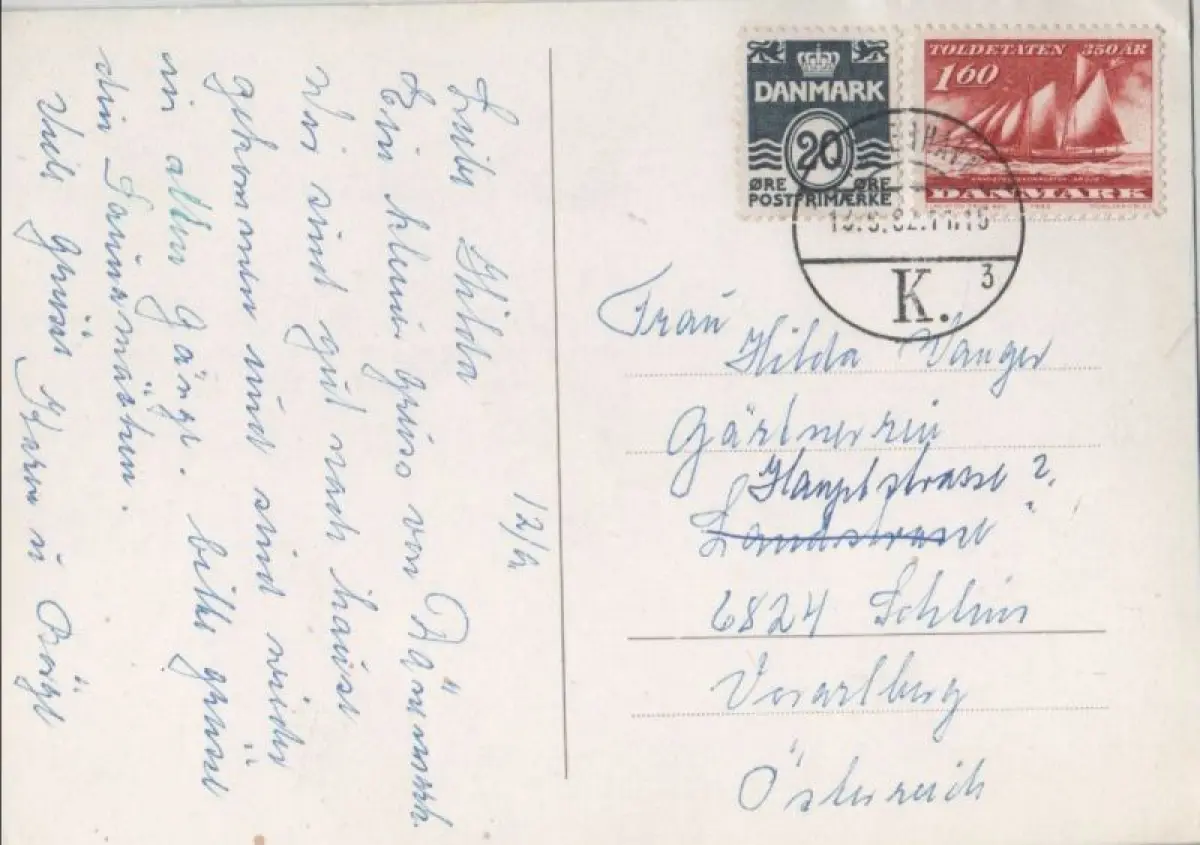 12/6
Liebe Hilda
Ein kleine gruss von Dänmark.
Wir sind gut nach hause
gekommen und sind wieder
in alten gänge. bitte grüsse
die
Viele grüse
DANMARK
20
ØRE ØRE
POSTFRIMÆRKE
TOLDETATEN 350 ÅR
1 60
DANMARK
K. 3
Frau
Hilda Vanger
Gärtnerin
Hauptstrasse 2.
Landstrasse
6824 Schlins
Vorarlberg
Österreich